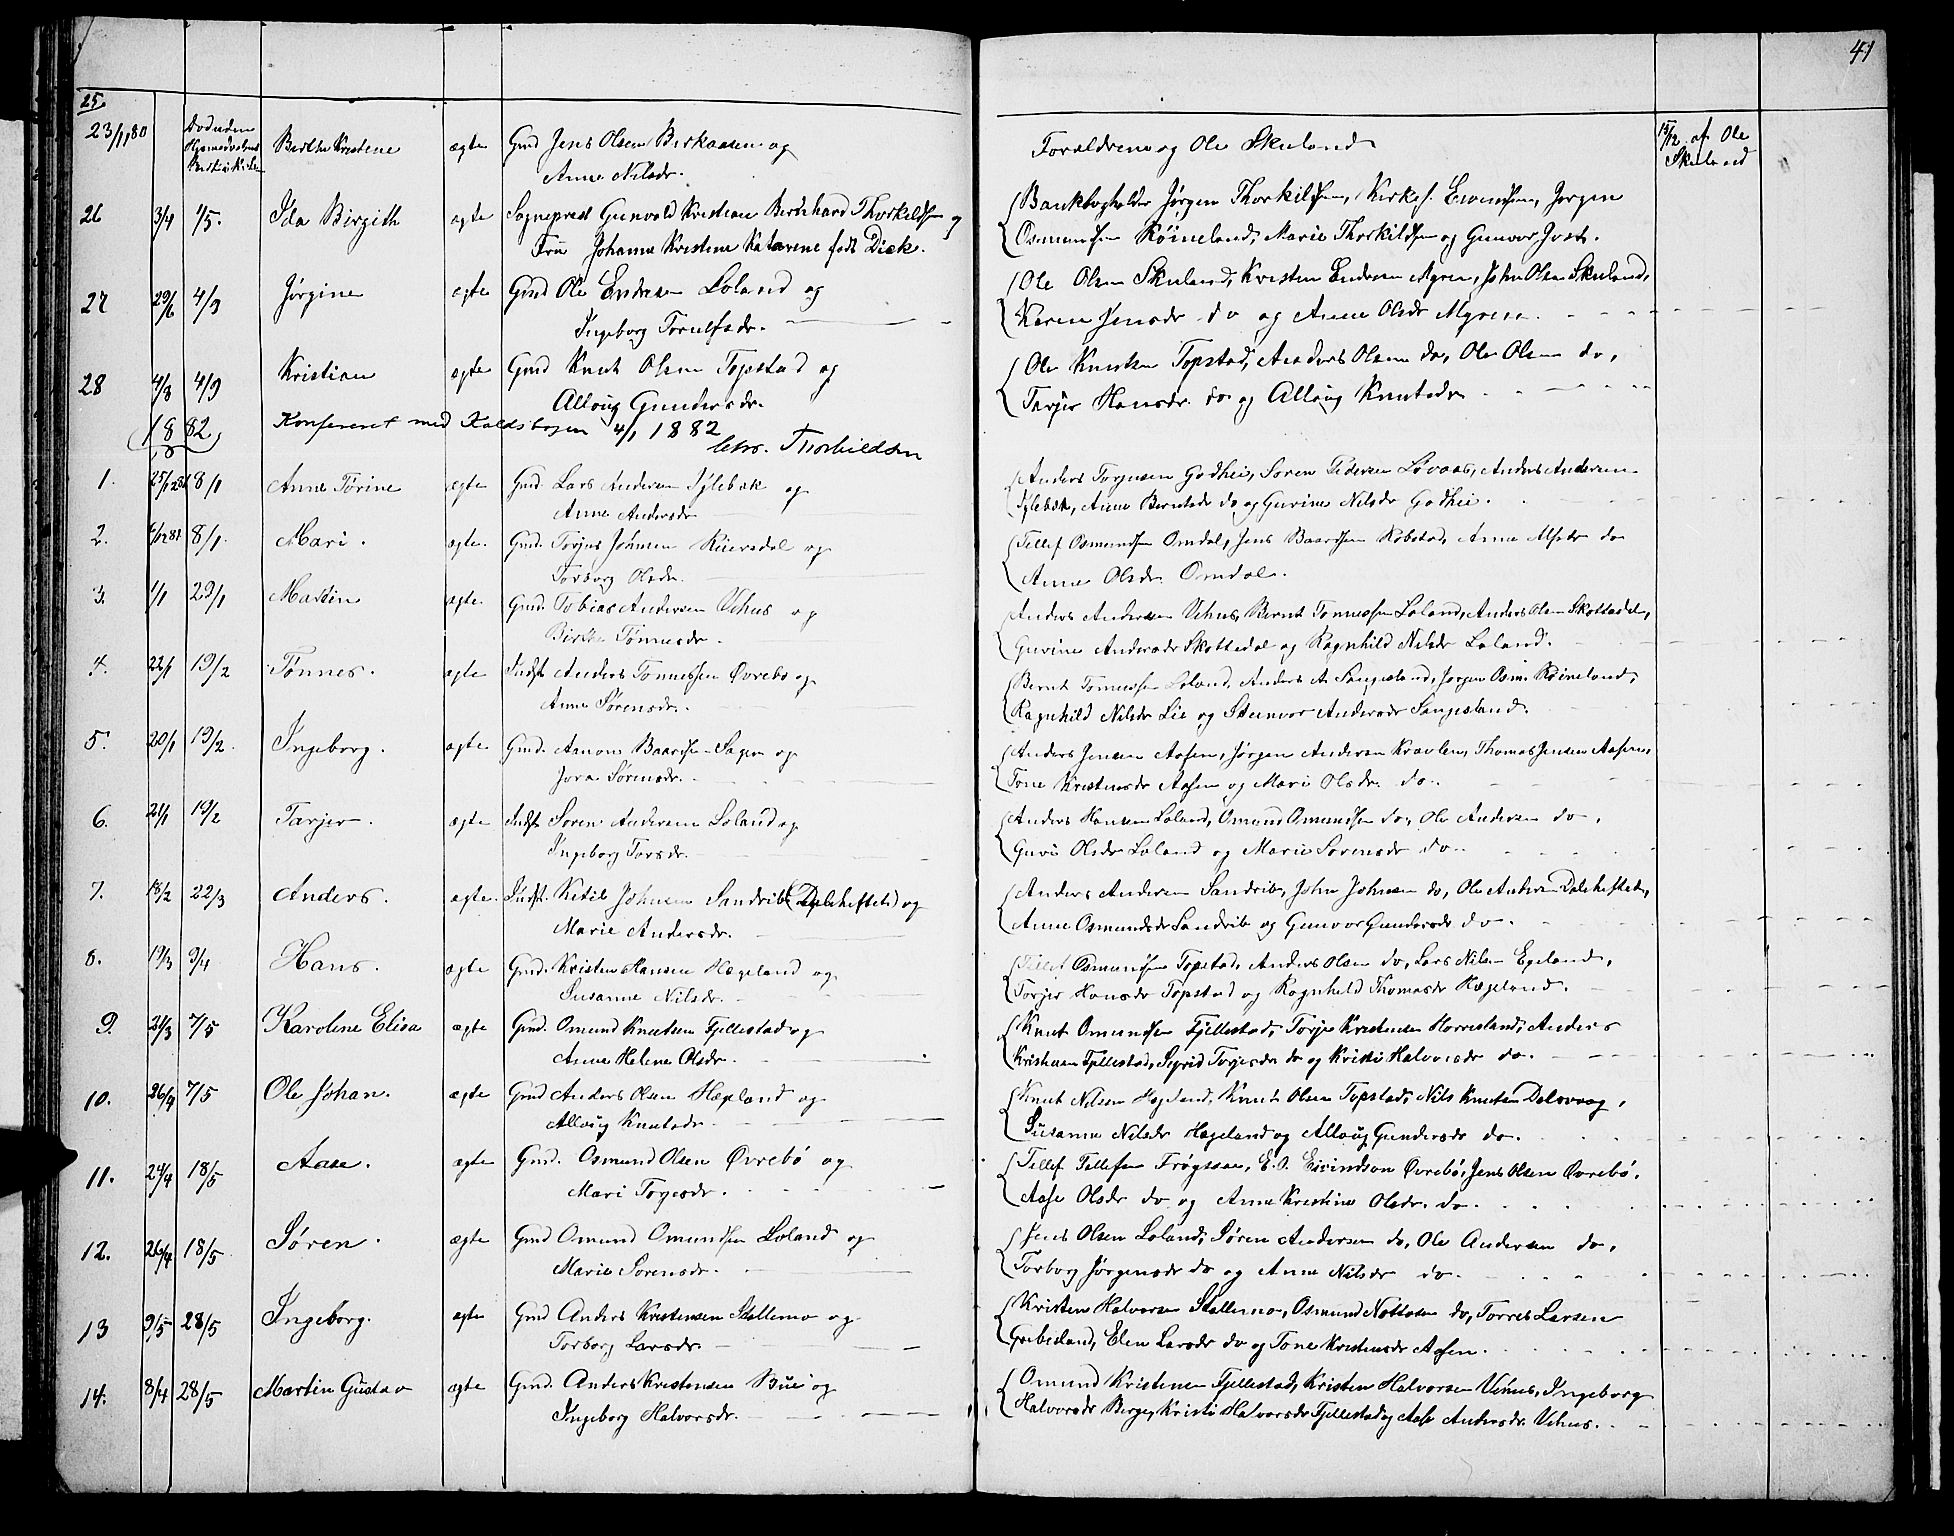 41
25.
23/1,80 Berthe Kristine ægte Gmd Jens Olsen Birkaasen og
Anne Nilsdr.
Forældrene og Ole Skuland
15/12 af Ole
Skuland
26 3/4 1/5. Ida Birgith ægte Sogneprest Gunvald Kristian Bernhard Thorkildsen og
Fru Johanne Kristine Katarene født Dick.
Bankbogholder Jørgen Thorkildsen, Kirkes. Evensen, Jørgen
Osmundsen Røineland, Marie Thorkildsen og Gunvor Jost.
27 29/6 4/9 Jørgine ægte Gmd Ole Endresen Loland og
Ingeborg Torulfsdr.
Ole Olsen Skuland, Kristen Endresen Myren, John Olsen Skuland,
Karen Jensdr do og Anne Olsdr Myren.
28 4/8 4/9 Kristian ægte Gmd Knut Olsen Topstad og
Alloug Gundersdr.
Ole Knutsen Topstad, Anders Olsen do, Ole Olsen do,
Torjer Hansdr do og Alloug Knutsdr
1882
Konfereret med Kaldsbogen 4/1 1882
Chr. Thorkildsen
1. 8/1 Anne Tørine ægte Gmd. Lars Andersen Iglebæk og
Anne Andersdr
Anders Torjusen Godhei, Søren Pedersen Løvaas, Anders Andersen
Iglebæk, Anne Berntsdr do og Gurine Nilsdr Godhei.
2. 8/1. Mari. ægte. Gmd. Torjus Johnsen Rüersdal og
Torborg Olsdr.
Tellef Osmundsen Omdal, Jens Baardsen Robstad, Anne Alfsdr do
Anne Olsdr Omdal.
3. 1/1 29/1 Martin ægte. Gmd. Tobias Andersen Vehus og
Birthe Tønnesdr.
Anders Andersen Vehus, Bernt Tønnessen Loland, Anders Olsen Skottedal,
Gurine Andersdr Skottedal og Ragnhild Nilsdr Loland.
4. 22/1 19/2 Tønnes. ægte Indst Anders Tønnessen Øvrebø og
Anne Sørensdr.
Bernt Tønnessen Loland, Anders A. Sangesland, Jørgen Osm. Røineland,
Ragnhild Nilsdr Lie og Steinvor Andersdr Sangesland.
5. 20/1 19/2. Ingeborg. ægte Gmd. Aanon Baardsen Sagen og
Jora Sørensdr.
Anders Jensen Aasen, Jørgen Andersen Kravlen, Thomas Jensen Aasen,
Tone Kristensdr Aasen og Mari Olsdr. do.
6. 21/1 19/2 Tarjer. ægte Indst Søren Andersen Loland og
Ingeborg Torsdr.
Anders Hansen Loland, Omund Omundsen do, Ole Andersen do,
Guri Olsdr Loland og Marie Sørensdr do.
7. 18/2 22/3 Anders. ægte. Indst. Ketil Johnsen Sandrib (Daleheftet) og
Marie Andersdr.
Anders Andersen Sandrib, John Johnsen do, Ole Andersen Daleheftet,
Anne Osmundsdr Sandrib og Gunvor Gundersdr do.
8. 19/3 9/4 Hans. ægte Gmd. Kristen Hansen Hægeland og
Susanne Nilsdr.
Tellef Osmundsen Topstad, Anders Olsen do, Lars Nilsen Egeland,
Torjer Hansdr Topstad og Ragnhild Thomasdr Hægeland.
9. 21/3 7/5 Karoline Elisa ægte Gmd. Omund Knutsen Fjellestad og
Anne Helene Olsdr.
Knut Omundsen Fjellestad, Torje Kristensen Horrisland, Anders
Kristensen Fjellestad, Sigrid Torjesdr do og Kristi Halvorsdr do.
10. 26/4 7/5 Ole Johan. ægte Gmd Anders Olsen Hægeland og
Alloug Knutsdr.
Knut Nilsen Hægeland, Knut Olsen Topstad, Nils Knutsen Dalevaag,
Susanne Nilsdr Hægeland og Alloug Gundersdr do.
11. 24/4 18/5 Aase. ægte Gmd. Osmund Olsen Øvrebö og
Mari Torjesdr.
Tellef Tellefsen Frøgssaa, E. O. Eivindson Øvrebö, Jens Olsen Øvrebö,
Aase Olsdr do og Anne Kristine Olsdr. do.
12. 26/4 18/5 Søren. ægte Gmd Omund Omundsen Loland og
Marie Sørensdr.
Jens Olsen Loland, Søren Andersen do, Ole Andersen do,
Torborg Jørgensdr do og Anne Nilsdr do.
13 9/5 28/5 Ingeborg. ægte Gmd Anders Kristensen Stallemo og
Torborg Larsdr.
Kristen Halvorsen Stallemo, Osmund Nottosen do, Torres Larsen
Greibesland, Elen Larsdr do og Tone Kristensdr Aasen.
14. 8/4 28/5 Martin Gustav ægte Gmd. Anders Kristensen Büe og
Ingeborg Halvorsdr.
Omund Kristensen Fjellestad, Kristen Halvorsen Vehus, Ingeborg
Halvorsdr Berge, Kristi Halvorsdr Fjellestad og Aase Andersdr. Vehus.